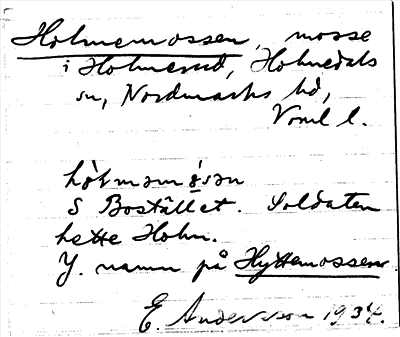 Holmemossen, mosse
i Holmerud, Holmedals
sn, Nordmarks hd,
Vrml l.
hòlmǝmǝ̀sǝn
S Bostället. Soldaten
hette Holm.
Y. namn på Hyttemossen.
E. Andersson 1934.